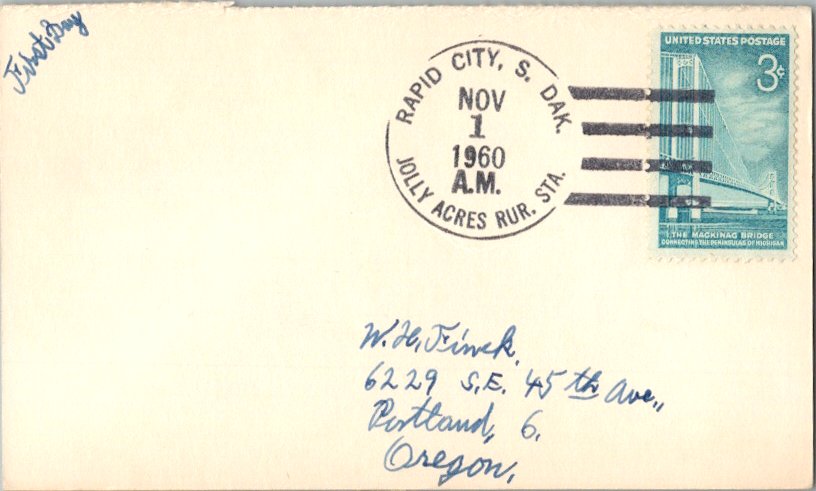 First Day
RAPID CITY, S. DAK.
NOV
1
1960
A.M.
JOLLY ACRES RUR. STA.
UNITED STATES POSTAGE
3¢
THE MACKINAC BRIDGE
CONNECTING THE PENINSULAS OF MICHIGAN
W. H. Finck.
6229 S.E. 45th Ave.,
Portland, 6.
Oregon,